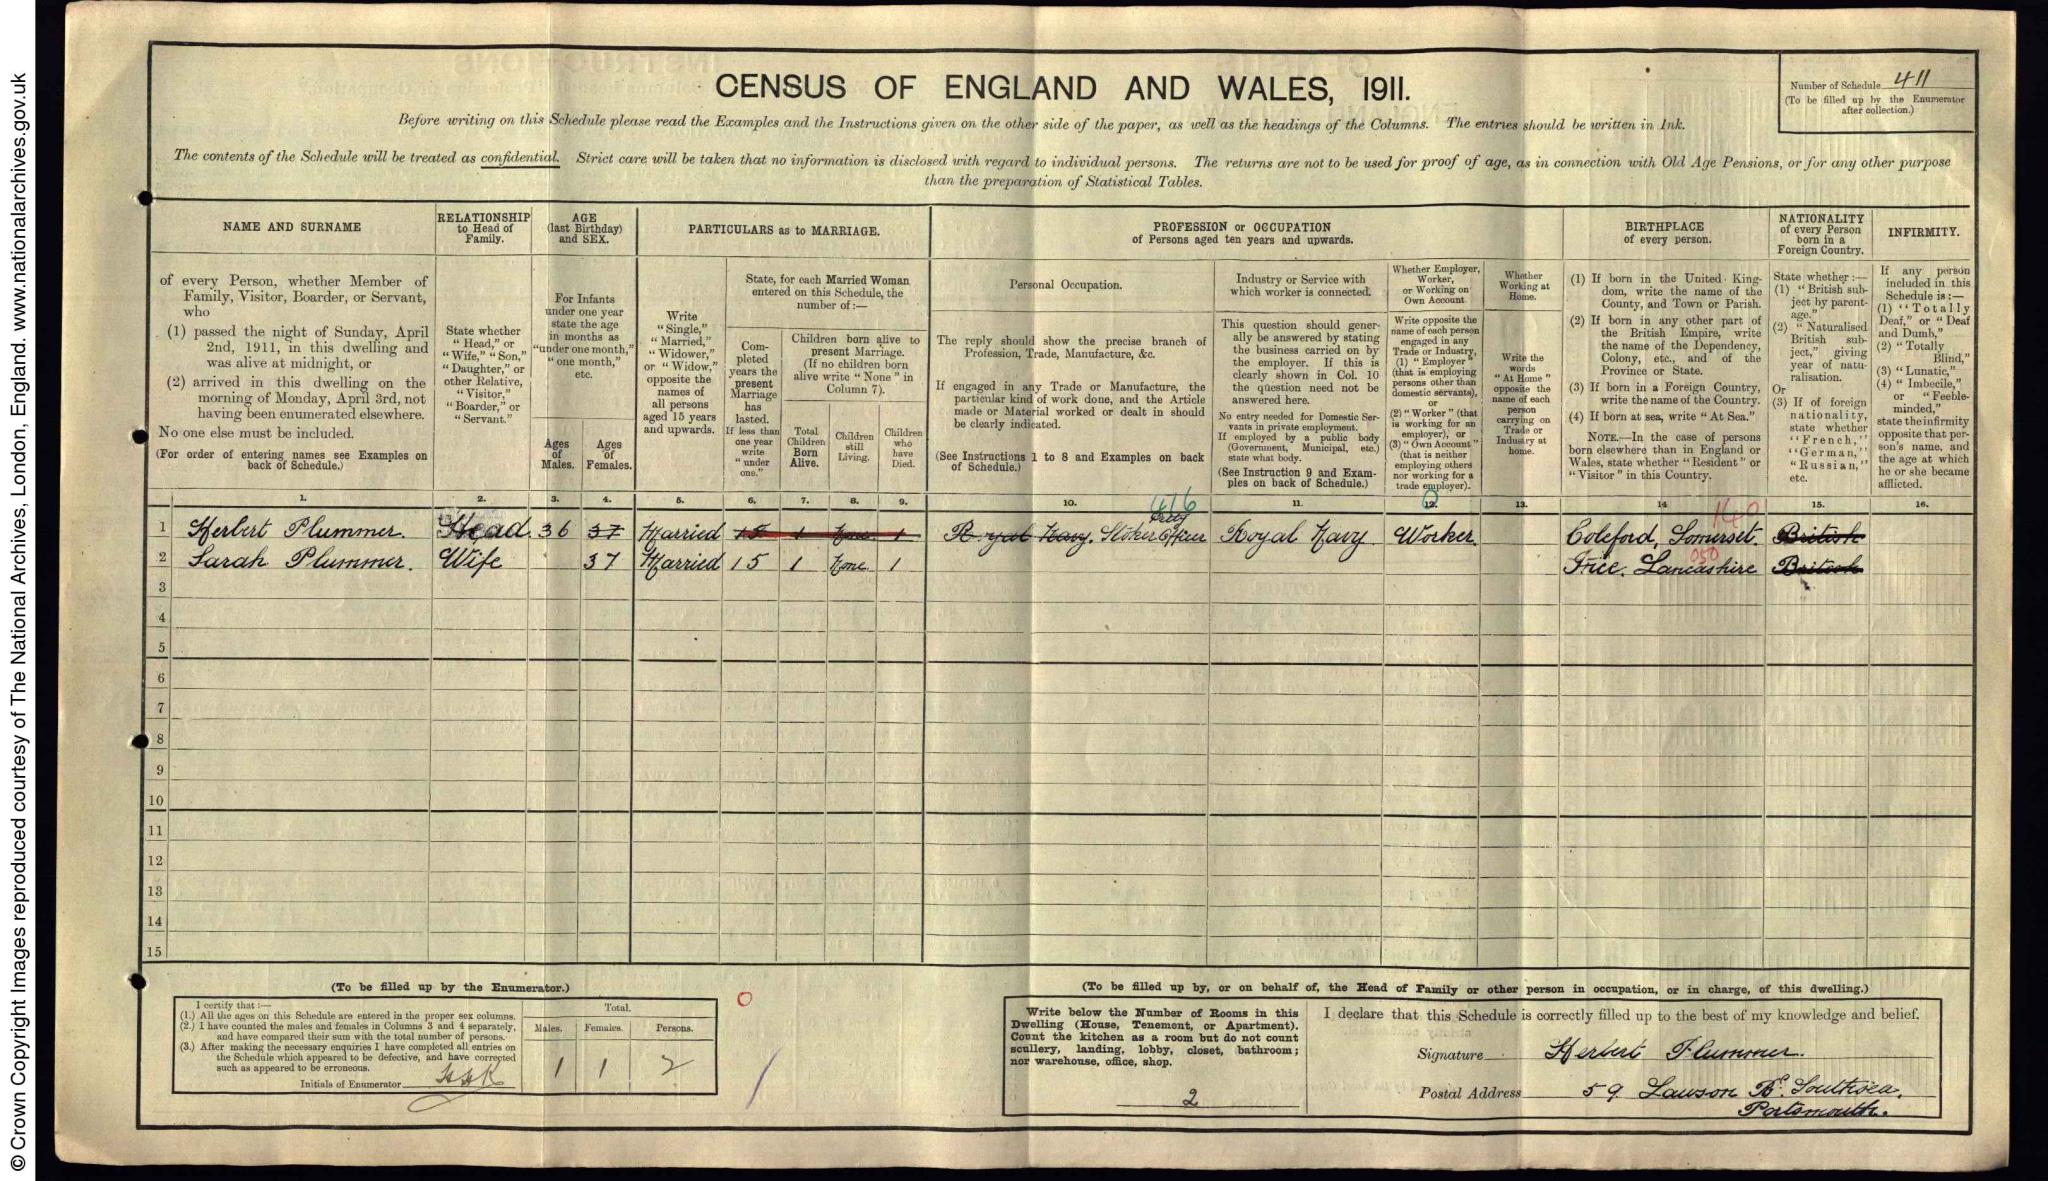 CENSUS OF ENGLAND AND WALES, 1911.
Number of Schedule 411
(To be filled up by the Enumerator
after collection.)
Before writing on this Schedule please read the Examples and the Instructions given on the other side of the paper, as well as the headings of the Columns. The entries should be written in Ink.
The contents of the Schedule will be treated as confidential. Strict care will be taken that no information is disclosed with regard to individual persons. The returns are not to be used for proof of age, as in connection with Old Age Pensions, or for any other purpose
than the preparation of Statistical Tables.
NAME AND SURNAME
of every Person, whether Member of
Family, Visitor, Boarder, or Servant,
who
(1) passed the night of Sunday, April
2nd, 1911, in this dwelling and
was alive at midnight, or
(2) arrived in this dwelling on the
morning of Monday, April 3rd, not
having been enumerated elsewhere.
No one else must be included.
(For order of entering names see Examples on
back of Schedule.)
RELATIONSHIP
to Head of
Family.
State whether
"Head," or
"Wife," "Son,"
"Daughter," or
other Relative,
"Visitor,"
"Boarder," or
"Servant."
AGE
(last Birthday)
and SEX.
For Infants
under one year
state the age
in months as
"under one month,"
"one month,"
etc.
Ages
of
Males.
Ages
of
Females.
PARTICULARS as to MARRIAGE.
Write
"Single,"
"Married,"
"Widower,"
or "Widow,"
opposite the
names of
all persons
aged 15 years
and upwards.
State, for each Married Woman
entered on this Schedule, the
number of:—
Com-
pleted
years the
present
Marriage
has
lasted.
If less than
one year
write
"under
one."
Children born alive to
present Marriage.
(If no children born
alive write "None" in
Column 7).
Total
Children
Born
Alive.
Children
still
Living.
Children
who
have
Died.
PROFESSION or OCCUPATION
of Persons aged ten years and upwards.
Personal Occupation.
The reply should show the precise branch of
Profession, Trade, Manufacture, &c.
If engaged in any Trade or Manufacture, the
particular kind of work done, and the Article
made or Material worked or dealt in should
be clearly indicated.
(See Instructions 1 to 8 and Examples on back
of Schedule.)
Industry or Service with
which worker is connected.
This question should gener-
ally be answered by stating
the business carried on by
the employer. If this is
clearly shown in Col. 10
the question need not be
answered here.
No entry needed for Domestic Ser-
vants in private employment.
If employed by a public body
(Government, Municipal, etc.)
state what body.
(See Instruction 9 and Exam-
ples on back of Schedule.)
Whether Employer,
Worker,
or Working on
Own Account
Write opposite the
name of each person
engaged in any
Trade or Industry,
(1) "Employer"
(that is employing
persons other than
domestic servants),
or
(2) "Worker" (that
is working for an
employer), or
(3) "Own Account"
(that is neither
employing others
nor working for a
trade employer).
Whether
Working at
Home.
Write the
words
"At Home"
opposite the
name of each
person
carrying on
Trade or
Industry at
home.
BIRTHPLACE
of every person.
(1) If born in the United King-
dom, write the name of the
County, and Town or Parish.
(2) If born in any other part of
the British Empire, write
the name of the Dependency,
Colony, etc., and of the
Province or State.
(3) If born in a Foreign Country,
write the name of the Country.
(4) If born at sea, write "At Sea."
NOTE.—In the case of persons
born elsewhere than in England or
Wales, state whether "Resident" or
"Visitor" in this Country.
NATIONALITY
of every Person
born in a
Foreign Country.
State whether:—
(1) "British sub-
ject by parent-
age."
(2) "Naturalised
British sub-
ject," giving
year of natu-
ralisation.
Or
(3) If of foreign
nationality,
state whether
"French,"
"German,"
"Russian,"
etc.
INFIRMITY.
If any person
included in this
Schedule is:—
(1) "Totally
Deaf," or "Deaf
and Dumb,"
(2) "Totally
Blind,"
(3) "Lunatic,"
(4) "Imbecile,"
or "Feeble-
minded,"
state the infirmity
opposite that per-
son's name, and
the age at which
he or she became
afflicted.
1. 2. 3. 4. 5. 6. 7. 8. 9. 10. 11. 12. 13. 14 15. 16.
416 140
Petty
1 Herbert Plummer. Head. 36 37 Married 15 1 None. 1 Royal Navy. Stoker Officer Royal Navy Worker. Coleford, Somerset. British
050
2 Sarah Plummer. Wife 37 Married 15 1 None 1 Lancashire British
3
4
5
6
7
8
9
10
11
12
13
14
15
(To be filled up by the Enumerator.)
I certify that:—
(1.) All the ages on this Schedule are entered in the proper sex columns.
(2.) I have counted the males and females in Columns 3 and 4 separately,
and have compared their sum with the total number of persons.
(3.) After making the necessary enquiries I have completed all entries on
the Schedule which appeared to be defective, and have corrected
such as appeared to be erroneous.
Initials of Enumerator
Total.
Males. Females. Persons.
1 1 2
0
(To be filled up by, or on behalf of, the Head of Family or other person in occupation, or in charge, of this dwelling.)
Write below the Number of Rooms in this
Dwelling (House, Tenement, or Apartment).
Count the kitchen as a room but do not count
scullery, landing, lobby, closet, bathroom;
nor warehouse, office, shop.
2
I declare that this Schedule is correctly filled up to the best of my knowledge and belief.
Signature Herbert Plummer.
Postal Address 59 Lawson Rd. Southsea.
Portsmouth.
© Crown Copyright Images reproduced courtesy of The National Archives, London, England. www.nationalarchives.gov.uk